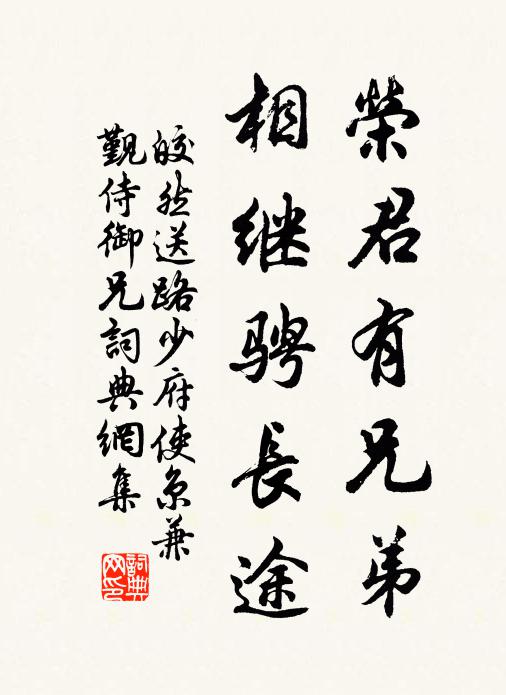 榮君有兄弟
相继骋長途
皎然送路少府使京兼
觐侍御兄詞典網集
詞典网印